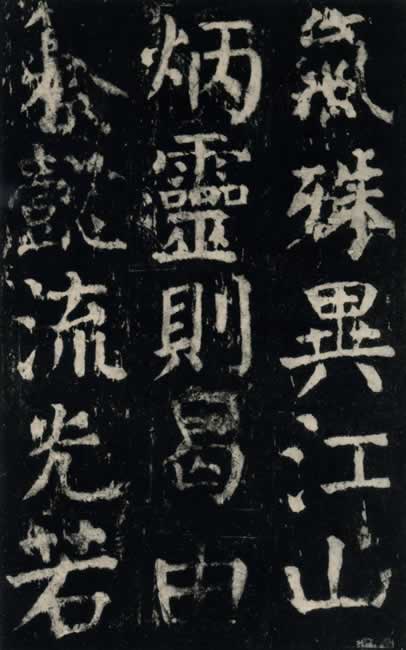 氣殊異江山
炳靈則曷由
懿流光若